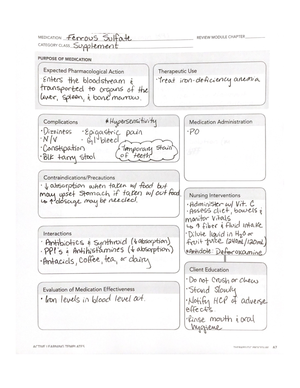 MEDICATION Ferrous Sulfate REVIEW MODULE CHAPTER
CATEGORY CLASS Supplement
PURPOSE OF MEDICATION
Expected Pharmacological Action
Enters the bloodstream &
transported to organs of the
liver, spleen, & bone marrow.
Therapeutic Use
Treat iron-deficiency anemia
Complications
* Hypersensitivity
• Dizziness
• Epigastric pain
• N/V
• GI bleed
• Constipation
• Blk tarry stool
Temporary stain
of teeth
Medication Administration
• PO
Contraindications/Precautions
↓ absorption when taken w/ food but
may upset stomach if taken w/out food
→ ↑ dosage may be needed.
Interactions
• Antibiotics & Synthroid (↓ absorption)
• PPI's & Antihistamines (↓ absorption)
• Antacids, coffee, tea, or dairy
Evaluation of Medication Effectiveness
• Iron levels in blood level
Nursing Interventions
• Administer w/ Vit. C
• Assess diet, bowels &
monitor vitals
→ ↑ fiber & fluid intake
• Dilute liquid in H₂O or
fruit juice
* Antidote: Deferoxamine
Client Education
• Do not crush or chew
• Stand slowly
• Notify HCP of adverse
effects
• Rinse mouth & oral
hygiene